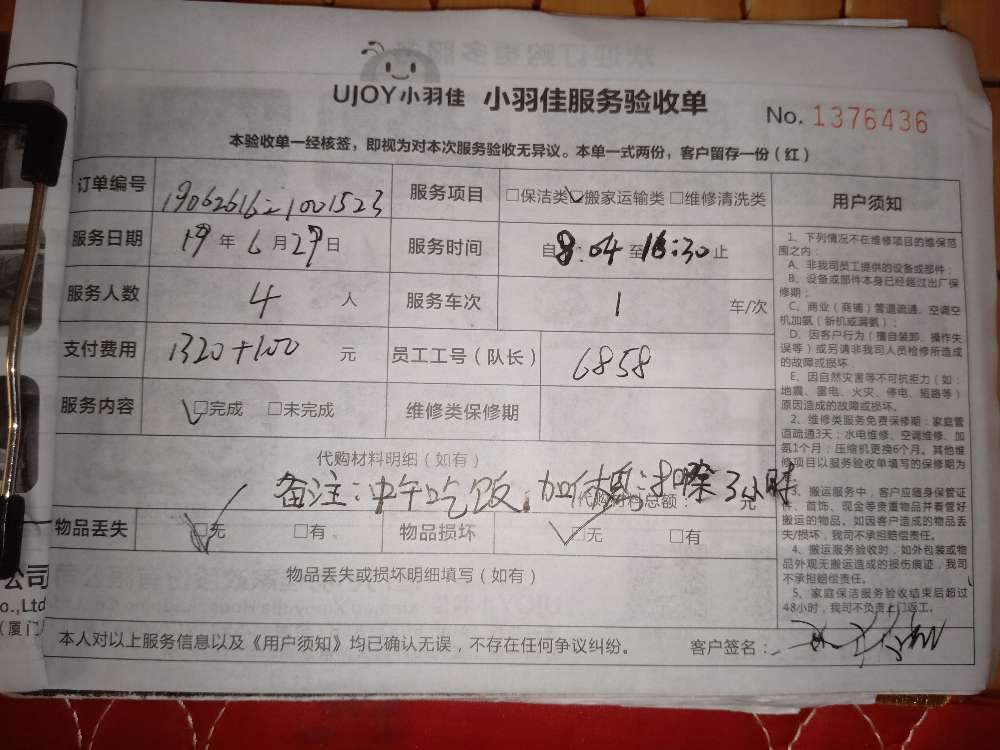 UJOY小羽佳 小羽佳服务验收单 No. 1376436
本验收单一经核签，即视为对本次服务验收无异议。本单一式两份，客户留存一份（红）
订单编号 服务项目 □保洁类 □搬家运输类 □维修清洗类
服务日期 19年6月27日 服务时间 自8:04至16:30止
服务人数 4 人 服务车次 1 车/次
支付费用 1320+100 元 员工工号（队长） 6858
服务内容 □完成 □未完成 维修类保修期
代购材料明细（如有）
备注:中午吃饭
代购材料总额： 元
物品丢失 □无 □有 物品损坏 □无 □有
物品丢失或损坏明细填写（如有）
本人对以上服务信息以及《用户须知》均已确认无误，不存在任何争议纠纷。 客户签名：
用户须知
1、下列情况不在维修项目的维保范
围之内：
A、非我司员工提供的设备或部件；
B、设备或部件本身已经超过出厂保
修期；
C、商业（商铺）管道疏通、空调空
机加氨（新机或漏氨）；
D、因客户行为（擅自装卸、操作失
误等）或另请非我司人员检修所造成
的故障或损坏
E、因自然灾害等不可抗拒力（如：
地震、雷电、火灾、停电、短路等）
原因造成的故障或损坏。
2、维修类服务免费保修期：家庭管
道疏通3天；水电维修、空调维修、加
氨1个月；压缩机更换6个月。其他维
修项目以服务验收单填写的保修期为
3、搬运服务中，客户应随身保管证
件、首饰、现金等贵重物品并看管好
搬运的物品。如因客户造成的物品丢
失/损坏，我司不承担赔偿责任。
4、搬运服务验收时，如外包装或物
品外观无搬运造成的损伤痕迹，我司
不承担赔偿责任。
5、家庭保洁服务验收结束后超过
48小时，我司不负责上门返工。
公司
o.,Ltd
（厦门